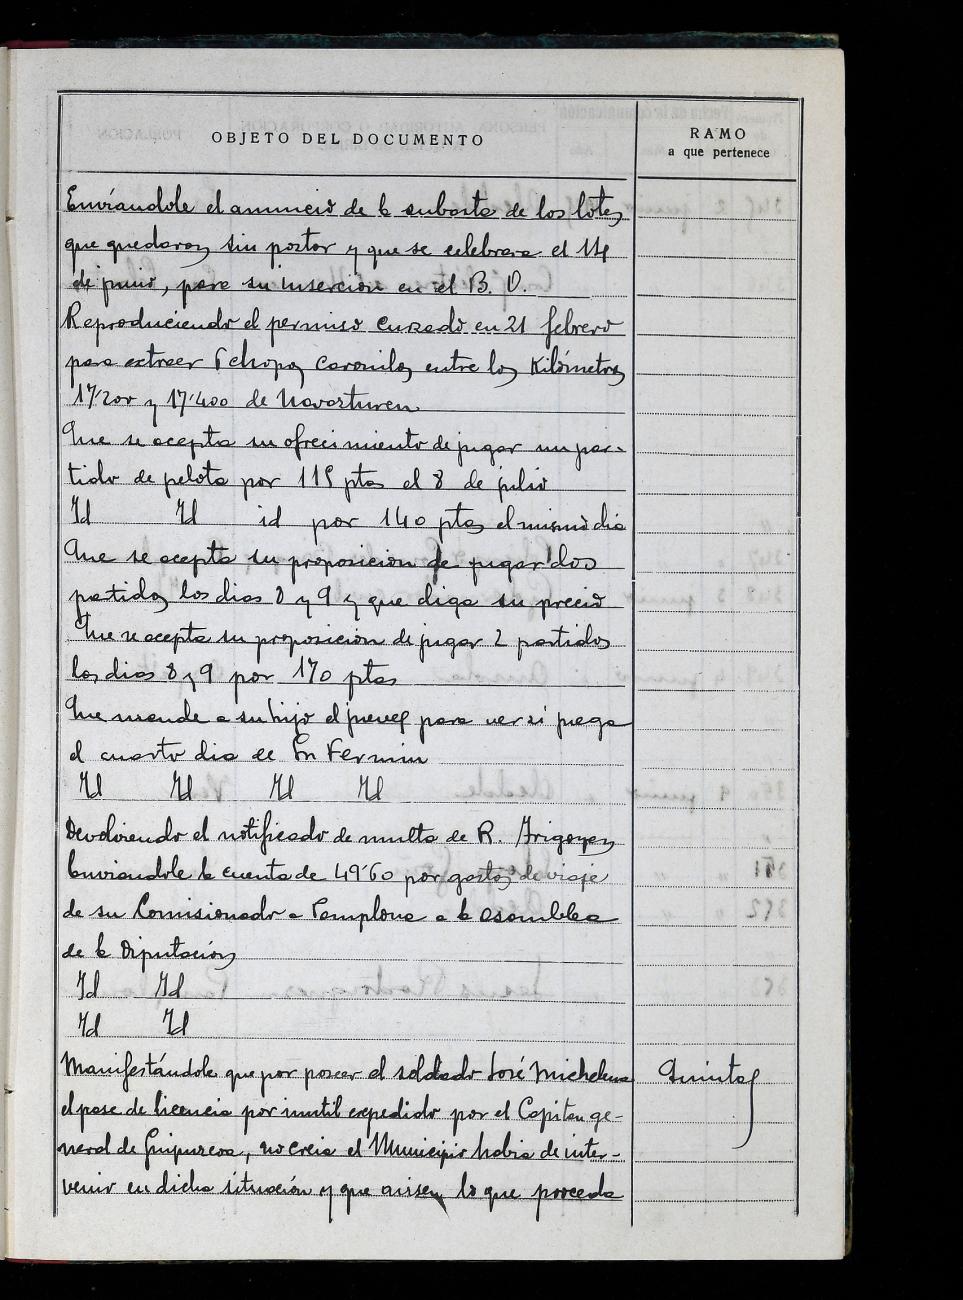 OBJETO DEL DOCUMENTO
RAMO
a que pertenece
Enviandole el anuncio de la subasta de los lotes
que quedaron sin postor y que se celebrara el 14
de junio, para su inserción en el B. O.
Reproduciendo el permiso cursado en 21 febrero
para extraer 6 chopos caronilos entre los Kilómetros
17'200 y 17'400 de Navasturen
Que se acepta su ofrecimiento de jugar un par-
tido de pelota por 115 ptas el 8 de julio
Id Id id por 140 ptas el mismo dia
Que se acepta su proposicion de jugar dos
partidos los dias 8 y 9 y que diga su precio
Que se acepta su proposicion de jugar 2 partidos
los dias 8 y 9 por 170 ptas
Que mande a su hijo el jueves para ver si juega
el cuarto dia de Sn Fermin
Id Id Id Id
Devolviendo el notificado de multa de R. Irigoyen
Enviandole la cuenta de 49'60 por gastos de viaje
de su Comisionado a Pamplona a la asamblea
de la Diputación
Id Id
Id Id
Manifestándole que por poseer el soldado José Michelena
Quintas
el pase de licencia por inutil expedido por el Capitan ge-
neral de Guipuzcoa, no creia el Municipio habia de inter-
venir en dicha situación y que avisen lo que proceda